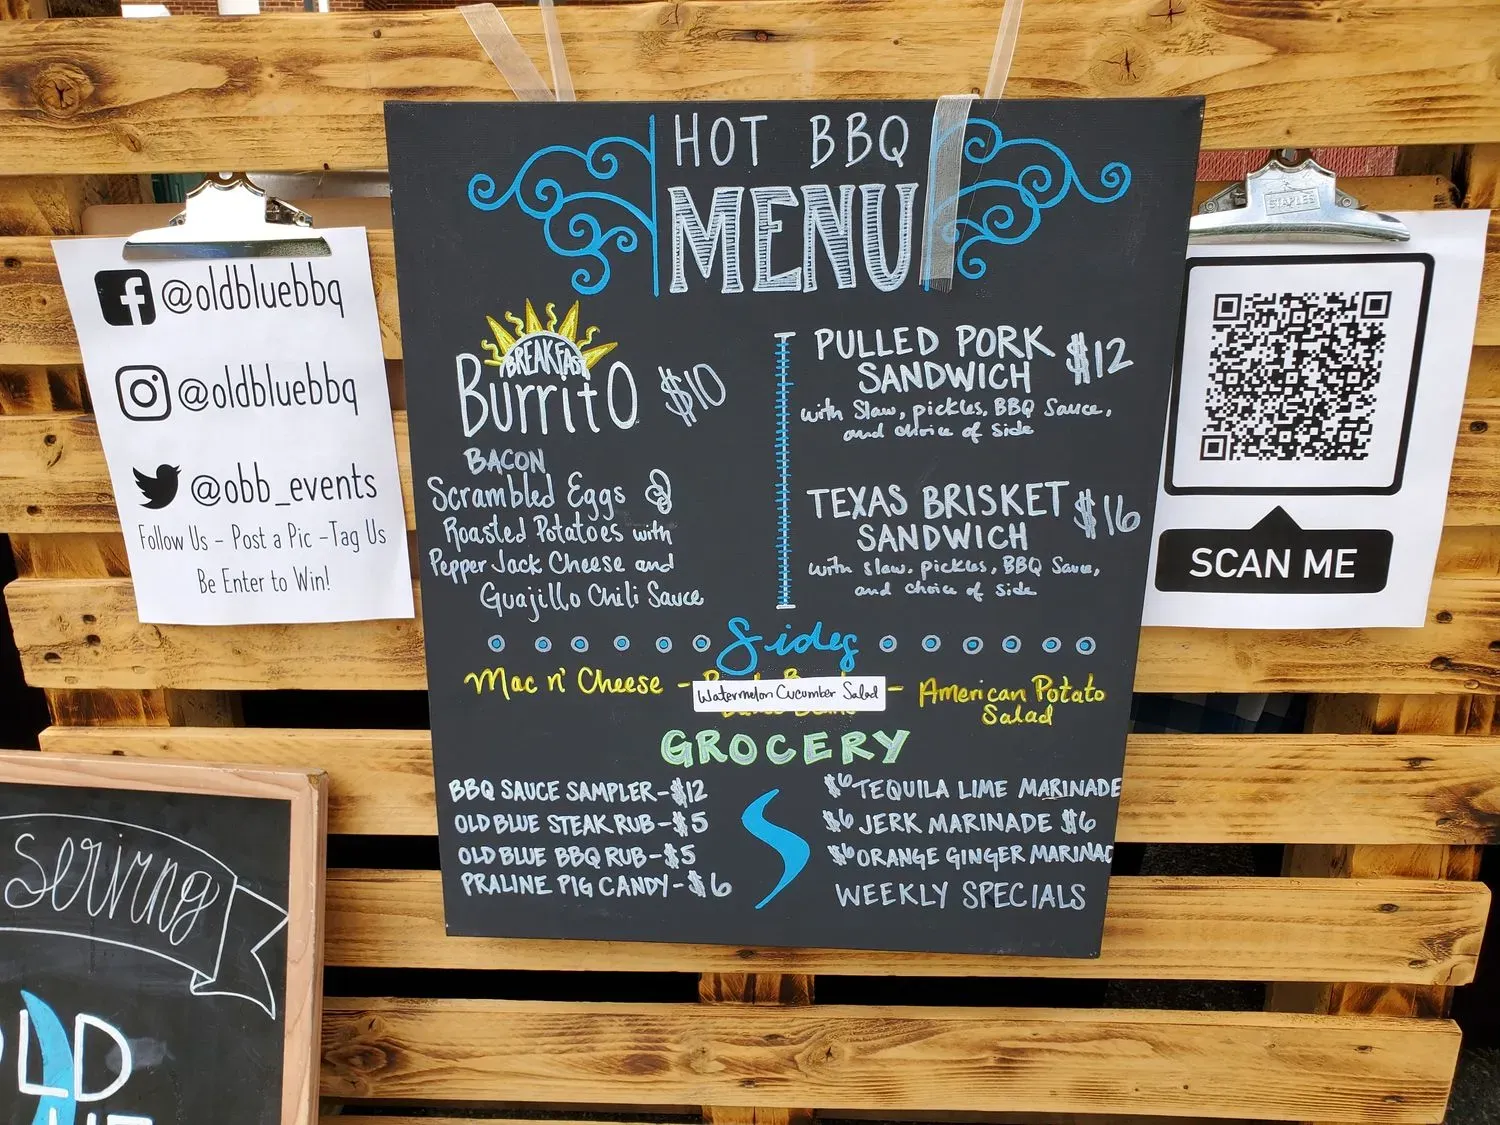 @oldbluebbq
@oldbluebbq
@obb_events
Follow Us - Post a Pic - Tag Us
Be Enter to Win!
HOT BBQ
MENU
BREAKFAST
BurritO $10
BACON
Scrambled Eggs &
Roasted Potatoes with
Pepper Jack Cheese and
Guajillo Chili Sauce
PULLED PORK
SANDWICH $12
with Slaw, pickles, BBQ Sauce,
and choice of Side
TEXAS BRISKET
SANDWICH $16
with slaw, pickles, BBQ Sauce,
and choice of side
Sides
Mac n' Cheese - Watermelon Cucumber Salad - American Potato
Salad
GROCERY
BBQ SAUCE SAMPLER - $12
OLD BLUE STEAK RUB - $5
OLD BLUE BBQ RUB - $5
PRALINE PIG CANDY - $6
$6 TEQUILA LIME MARINADE
$6 JERK MARINADE $6
$6 ORANGE GINGER MARINAD
WEEKLY SPECIALS
STAPLES
SCAN ME
serving
OLD